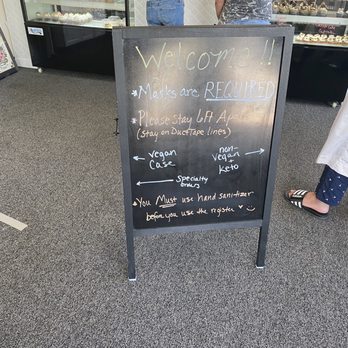 Welcome!!
*Masks are REQUIRED
*Please Stay 6ft Apart
(Stay on Duct Tape lines)
← vegan case
non-vegan + keto →
← Specialty orders
*You Must use hand sanitizer
before you use the register ♥ ☺